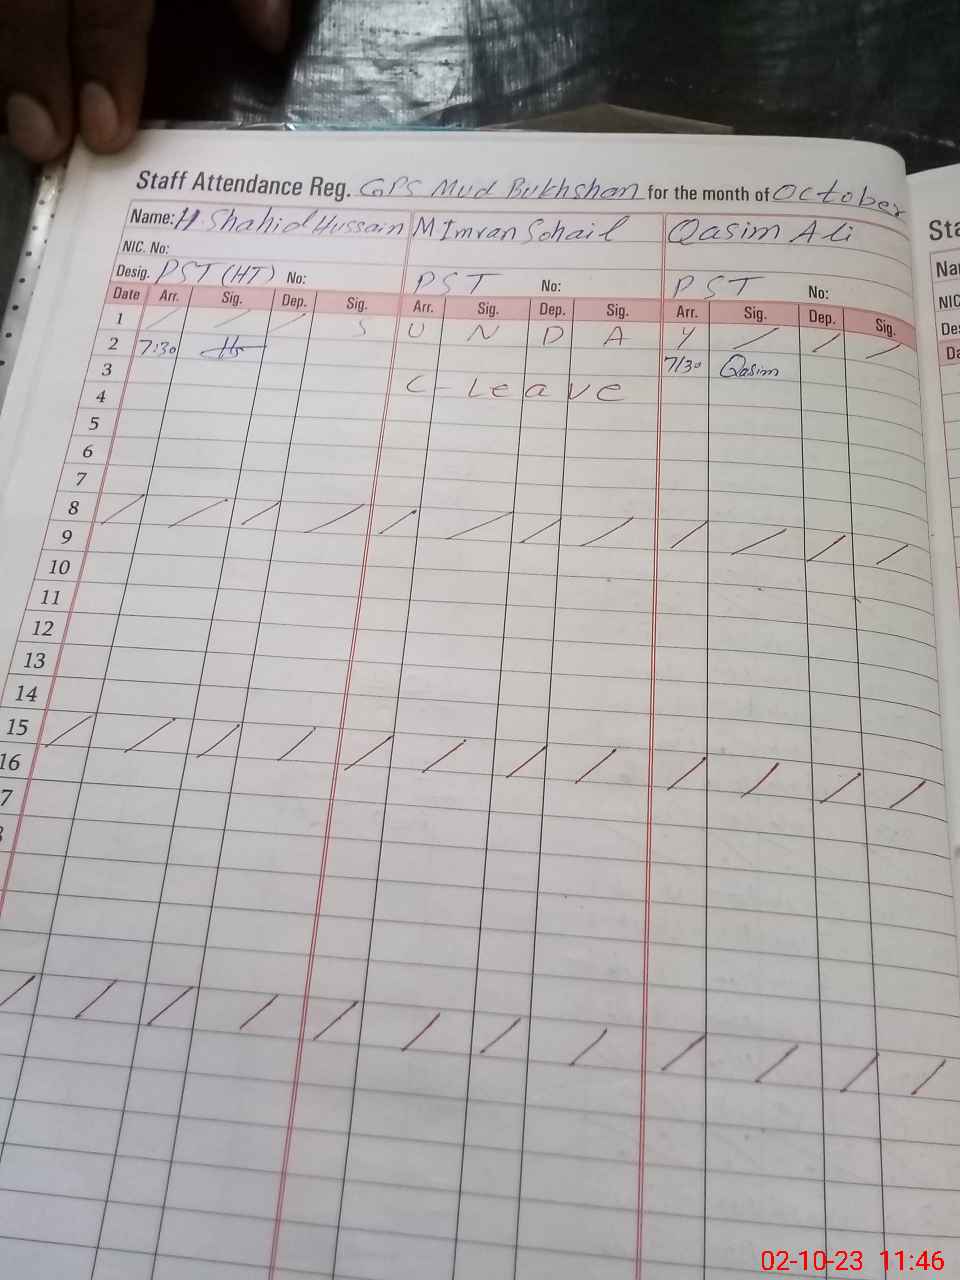 Staff Attendance Reg. GPS Mud Bukhshan for the month of October
Name: H. Shahid Hussain M Imran Sohail Qasim Ali
NIC. No:
Desig. PST (HT) No: PST No: PST No:
Date Arr. Sig. Dep. Sig. Arr. Sig. Dep. Sig. Arr. Sig. Dep. Sig.
1 / / / S U N D A Y / / /
2 7:30 7/30 Qasim
3 C - Leave
4
5
6
7
8 / / / / / / / / / / / /
9
10
11
12
13
14
15 / / / / / / / / / / / /
16
7
/ / / / / / / / / / / /
Sta
Nar
NIC
Des
Da
02-10-23 11:46